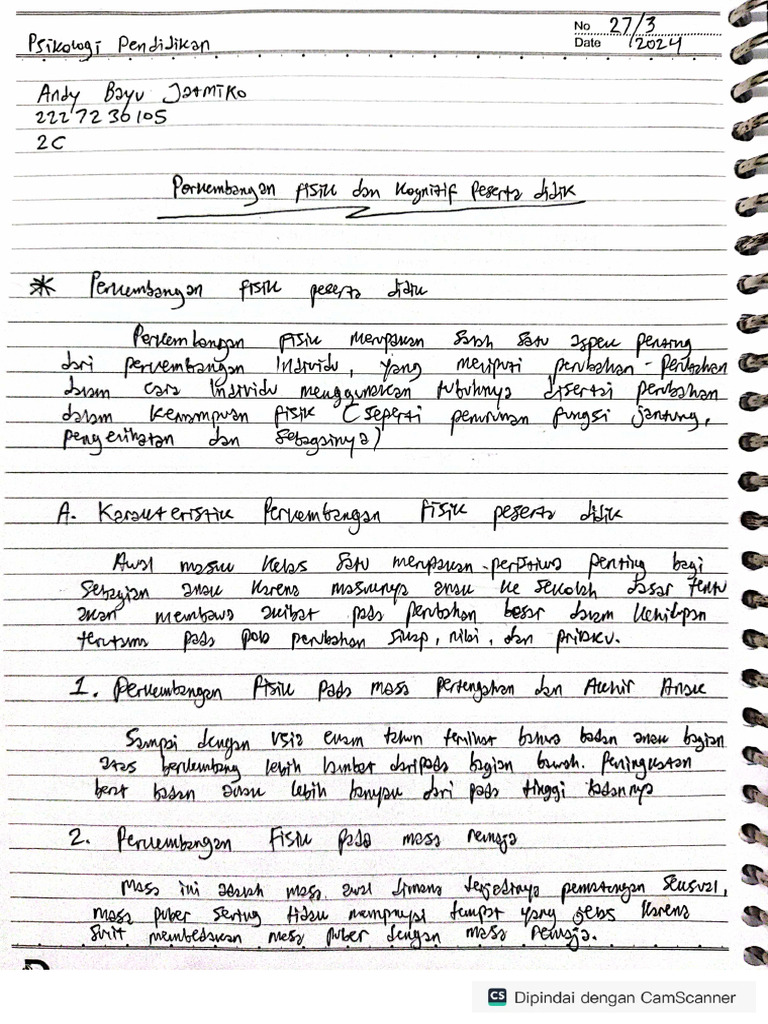 No 27/3
Date /2024
Psikologi Pendidikan
Andy Bayu Jatmiko
2227236105
2C
Perkembangan fisik dan Kognitif Peserta didik
* Perkembangan fisik peserta didik
Perkembangan fisik merupakan salah satu aspek penting
dari perkembangan Individu, yang meliputi perubahan-perubahan
dalam cara Individu menggunakan tubuhnya disertai perubahan
dalam kemampuan fisik (seperti penurunan fungsi jantung,
penglihatan dan sebagainya)
A. Karakteristik Perkembangan fisik peserta didik
Awal masuk kelas satu merupakan peristiwa penting bagi
sebagian anak karena masuknya anak ke sekolah dasar tentu
akan membawa akibat pada perubahan besar dalam kehidupan
terutama pada pola perubahan sikap, nilai, dan prilaku.
1. Perkembangan Fisik pada masa pertengahan dan Akhir Anak
Sampai dengan usia enam tahun terlihat bahwa badan anak bagian
atas berkembang lebih lambat daripada bagian bawah. Peningkatan
berat badan anak lebih banyak dari pada tinggi badannya
2. Perkembangan Fisik pada masa remaja
Masa ini adalah masa awal dimana terjadinya pematangan seksual,
masa puber sering tidak mempunyai tempat yang jelas karena
sulit membedakan masa puber dengan masa remaja.
CS Dipindai dengan CamScanner